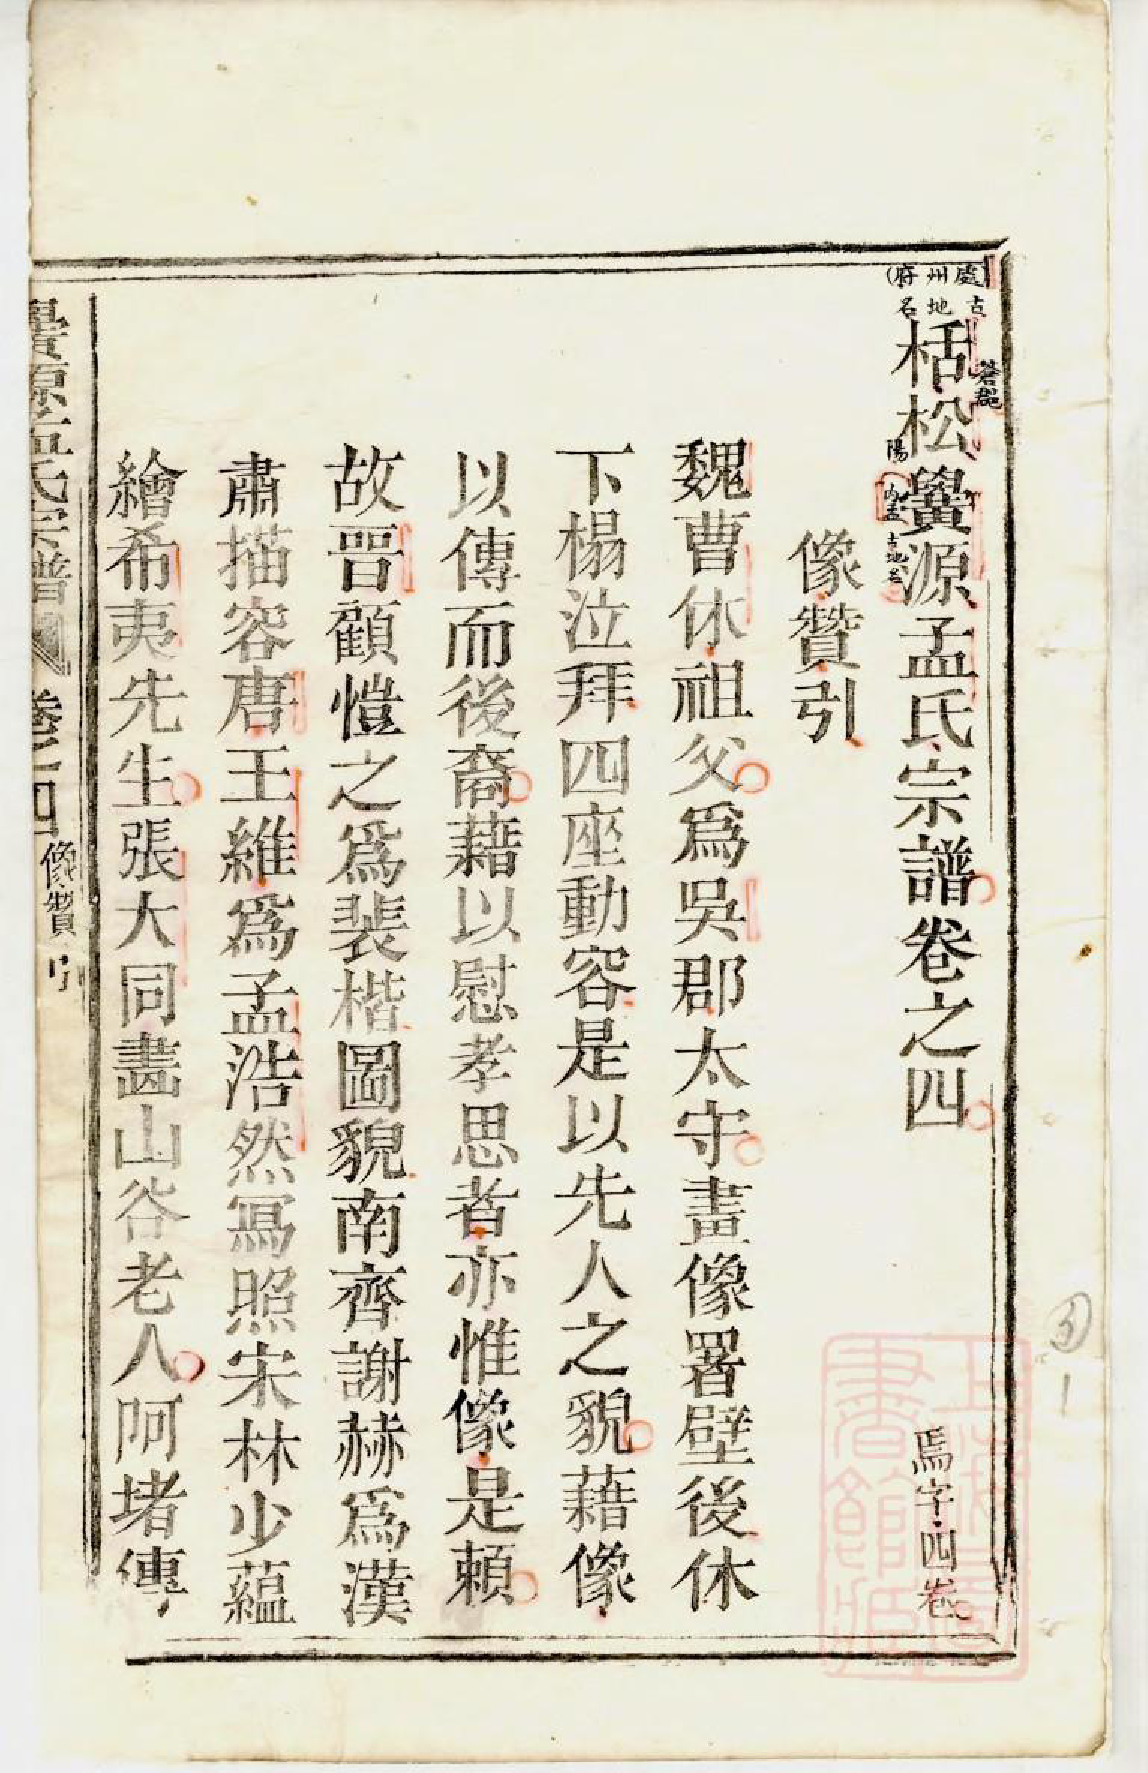 處州府
古地名
栝松黌源孟氏宗譜卷之四
蒼郡
陽
古地名
馬字四卷
像贊引
魏曹休祖父爲吳郡太守畫像署壁後休
下榻泣拜四座動容是以先人之貌藉像
以傳而後裔藉以慰孝思者亦惟像是賴
故晉顧愷之爲裴楷圖貌南齊謝赫爲漢
肅描容唐王維爲孟浩然寫照宋林少蘊
繪希夷先生張大同畫山谷老人阿堵傳
黌源孟氏宗譜
卷之四
像贊引
上海圖書館藏